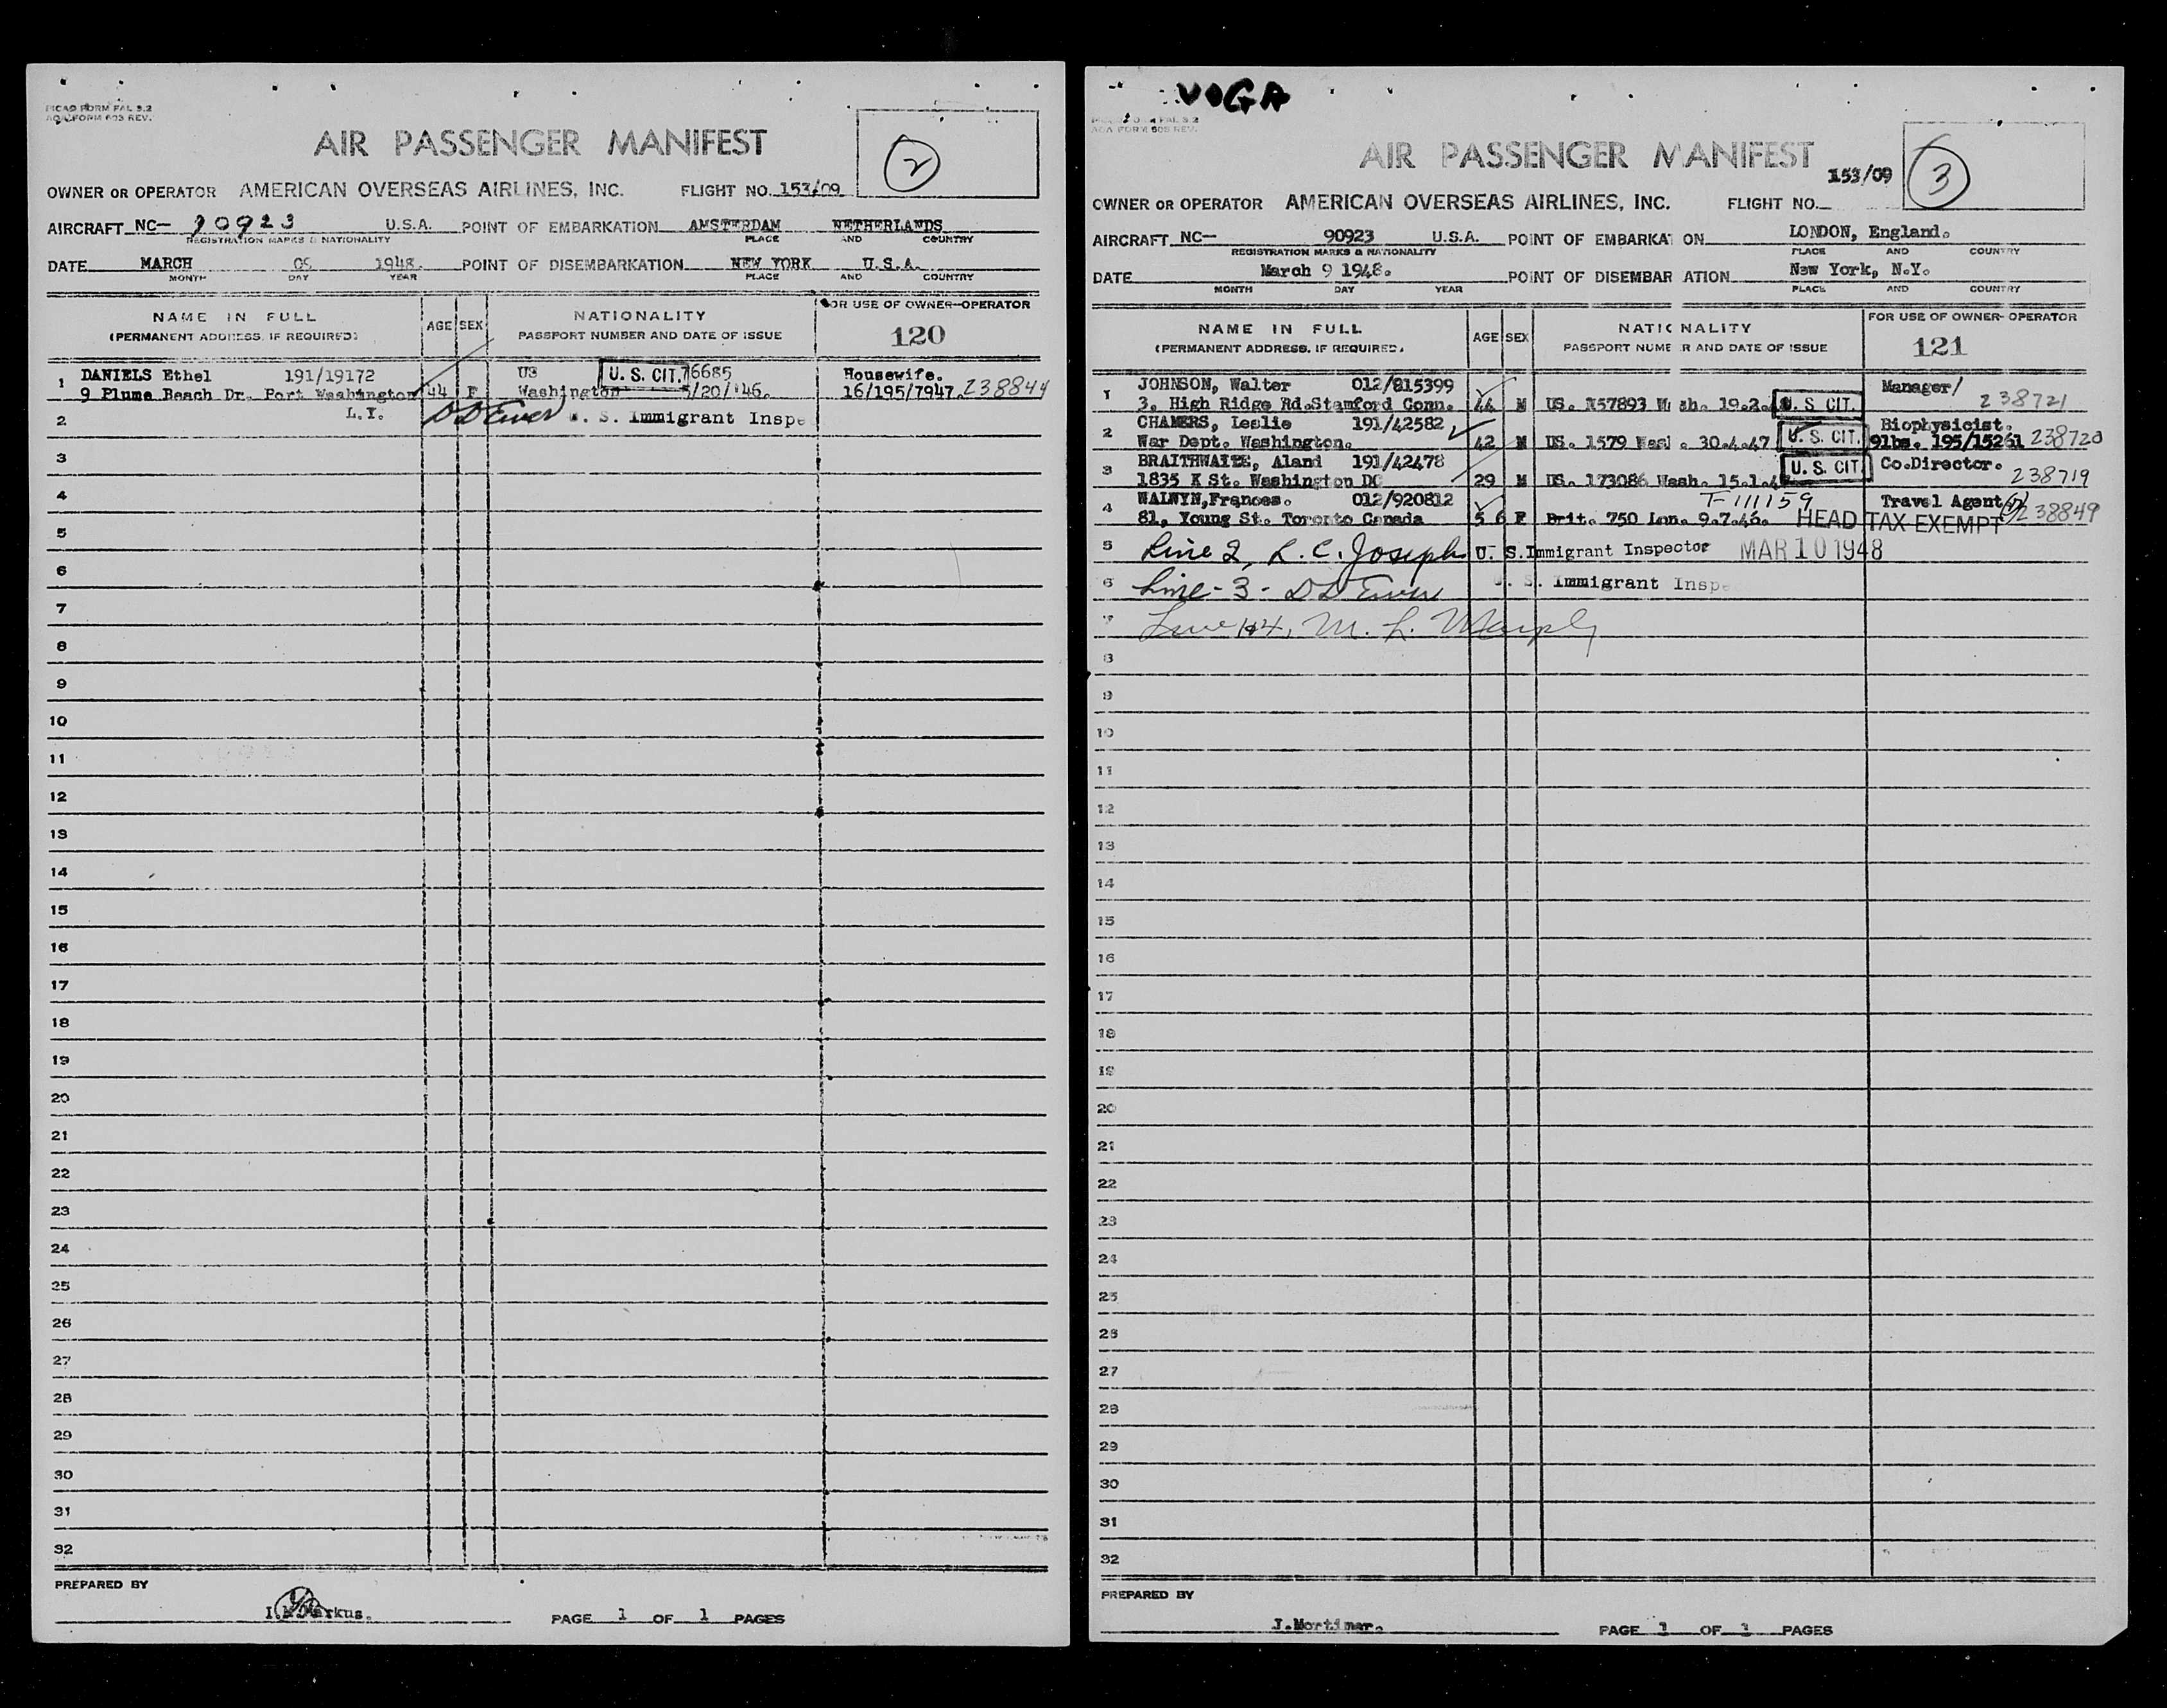 PICAO FORM FAL 3.2
AOA FORM 603 REV.
AIR PASSENGER MANIFEST
2
OWNER OR OPERATOR AMERICAN OVERSEAS AIRLINES, INC. FLIGHT NO. 153/09
AIRCRAFT NC- 90923 U.S.A. POINT OF EMBARKATION AMSTERDAM NETHERLANDS
REGISTRATION MARKS & NATIONALITY PLACE AND COUNTRY
DATE MARCH 09 1948. POINT OF DISEMBARKATION NEW YORK U.S.A.
MONTH DAY YEAR PLACE AND COUNTRY
NAME IN FULL
(PERMANENT ADDRESS, IF REQUIRED)
AGE SEX
NATIONALITY
PASSPORT NUMBER AND DATE OF ISSUE
FOR USE OF OWNER-OPERATOR
120
1 DANIELS Ethel 191/19172 US U. S. CIT. 76685 Housewife.
9 Plume Beach Dr. Port Washington 44 F Washington 5/20/'46. 16/195/7947. 238844
L.I.
2 D D Ewer U. S. Immigrant Inspe
3
4
5
6
7
8
9
10
11
12
13
14
15
16
17
18
19
20
21
22
23
24
25
26
27
28
29
30
31
32
PREPARED BY
Markus.
PAGE 1 OF 1 PAGES
VOGA
AOA FORM 603 REV.
AIR PASSENGER MANIFEST
153/09
3
OWNER OR OPERATOR AMERICAN OVERSEAS AIRLINES, INC. FLIGHT NO.
AIRCRAFT NC- 90923 U.S.A. POINT OF EMBARKAT ON LONDON, England.
REGISTRATION MARKS & NATIONALITY PLACE AND COUNTRY
DATE March 9 1948. POINT OF DISEMBAR ATION New York, N.Y.
MONTH DAY YEAR PLACE AND COUNTRY
NAME IN FULL
(PERMANENT ADDRESS, IF REQUIRED)
AGE SEX
NATIONALITY
PASSPORT NUMBER AND DATE OF ISSUE
FOR USE OF OWNER-OPERATOR
121
1 JOHNSON, Walter 012/815399 Manager/
3. High Ridge Rd.Stamford Conn. 44 M US. 157893 Wash. 19.2. U. S CIT. 238721
2 CHAMERS, Leslie 191/42582 Biophysicist.
War Dept. Washington. 42 M US. 1579 Wash. 30.4.47 U. S. CIT. 91bs. 195/15261 238720
3 BRAITHWAITE, Aland 191/42478 U. S. CIT. Co.Director.
1835 K St. Washington DC 29 M US. 173086 Wash. 15.1.4 238719
4 WALWYN,Frances. 012/920812 F-111159 Travel Agent
81, Young St. Toronto Canada 56 F Brit. 750 Lon. 9.7.46. HEAD TAX EXEMPT 238849
5 Line 2, L. C. Joseph U. S.Immigrant Inspector MAR 10 1948
6 Line - 3 - D D Ewer U. S. Immigrant Inspe
7 Line 1+4, M. L.
8
9
10
11
12
13
14
15
16
17
18
19
20
21
22
23
24
25
26
27
28
29
30
31
32
PREPARED BY
J.Mortimer.
PAGE 1 OF 1 PAGES